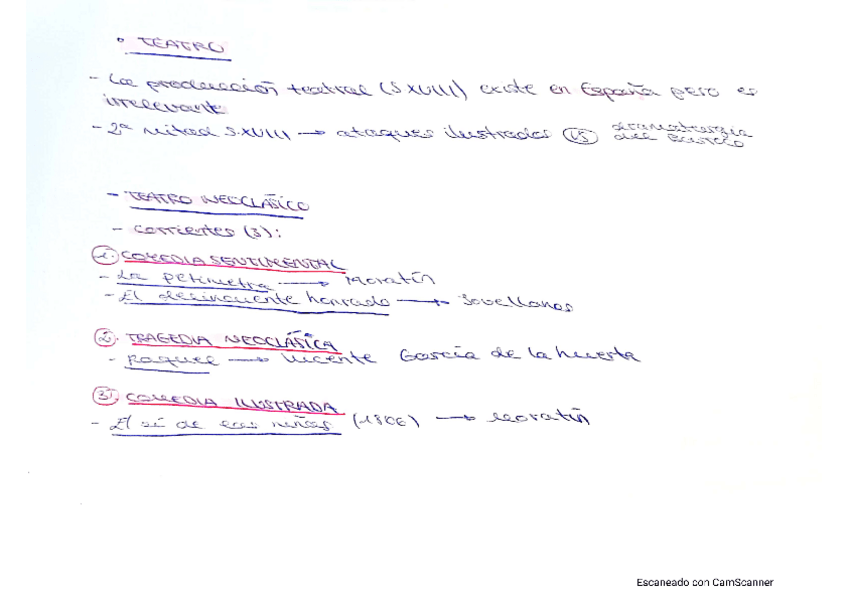 • TEATRO
- La producción teatral (S.XVIII) existe en España pero es
irrelevante
- 2ª mitad S.XVIII → ataques ilustrados VS dramaturgia
del Barroco
- TEATRO NEOCLÁSICO
- corrientes (3):
1. COMEDIA SENTIMENTAL
- La petimetra → Moratín
- El delincuente honrado → Jovellanos
2. TRAGEDIA NEOCLÁSICA
- Raquel → Vicente García de la huerta
3. COMEDIA ILUSTRADA
- El sí de las niñas (1806) → Moratín
Escaneado con CamScanner